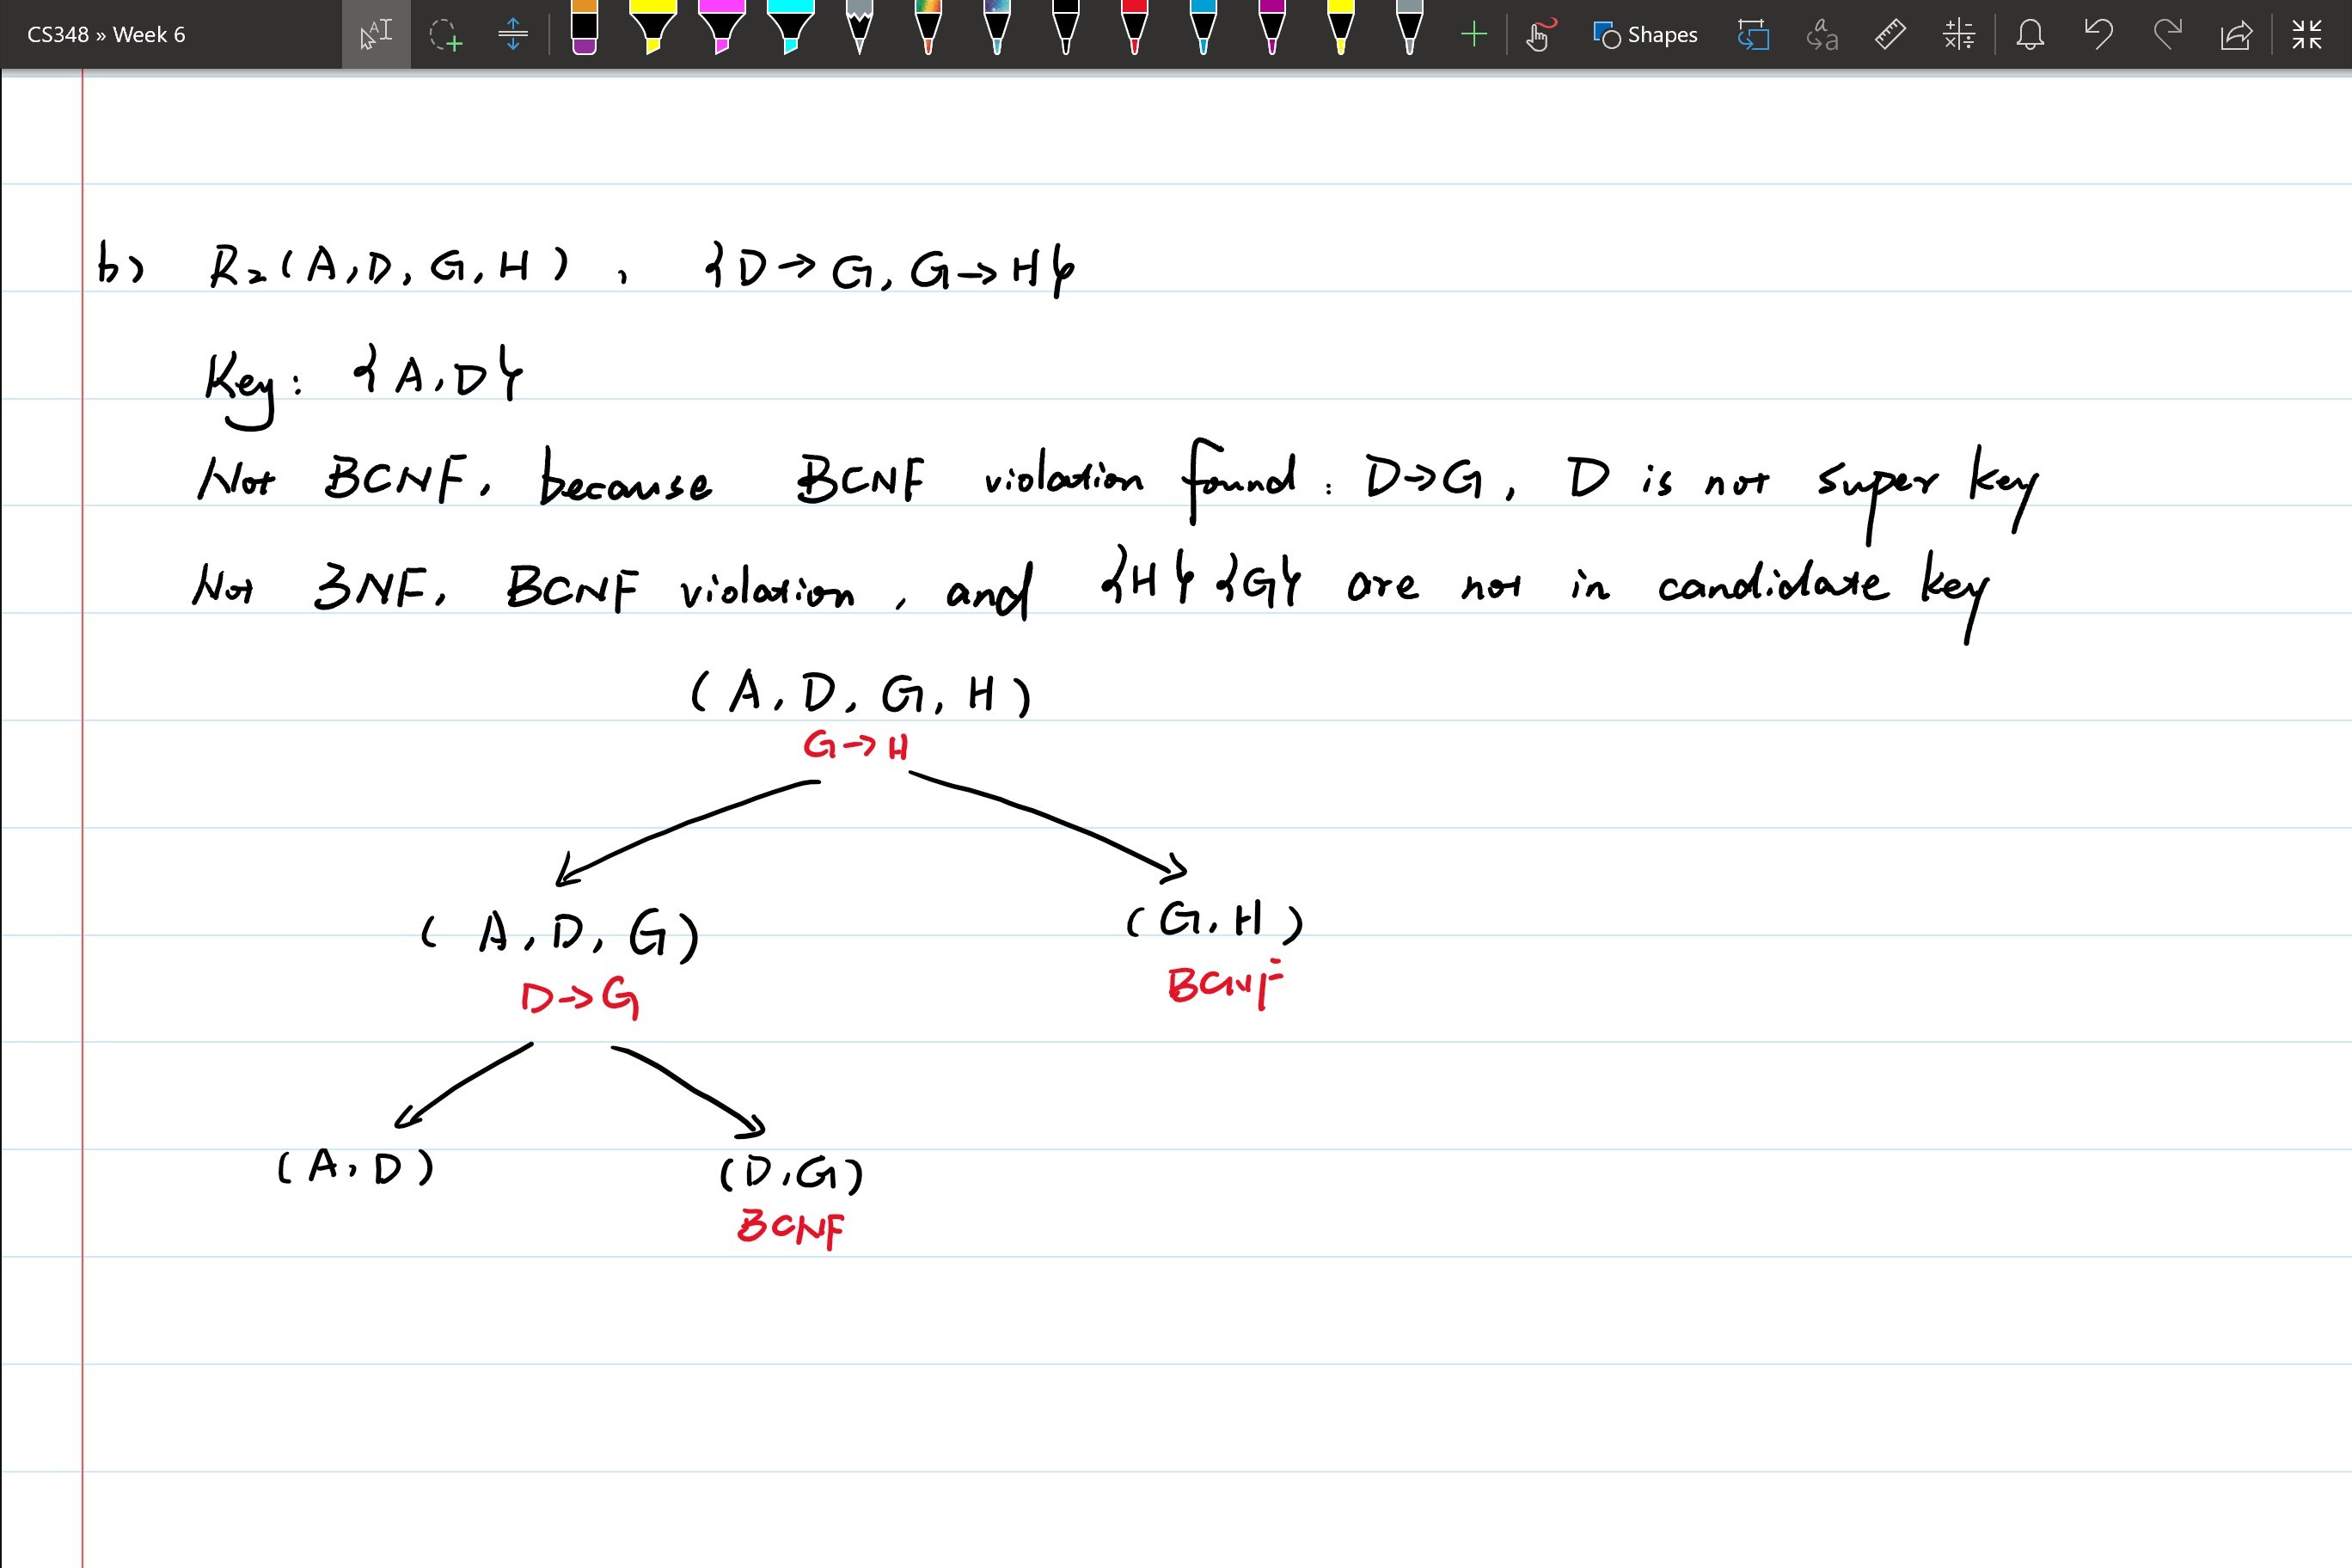 CS348 » Week 6
Shapes
b) R₂(A, D, G, H), {D → G, G → H}
Key: {A, D}
Not BCNF, because BCNF violation found: D → G, D is not super key
Not 3NF, BCNF violation, and {H} {G} are not in candidate key
(A, D, G, H)
G → H
(A, D, G) (G, H)
D → G BCNF
(A, D) (D, G)
BCNF